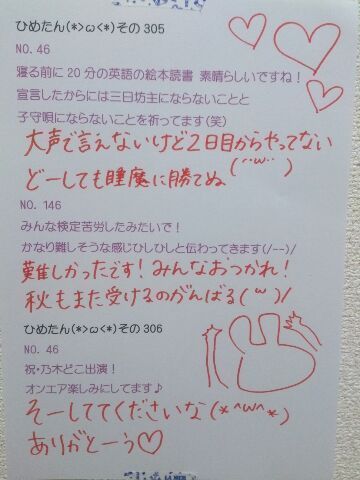 ひめたん(*>ω<*)その305
NO. 46
寝る前に20分の英語の絵本読書 素晴らしいですね！
宣言したからには三日坊主にならないことと
子守唄にならないことを祈ってます(笑)
大声で言えないけど2日目からやってない
(´˙ω˙`)
どーしても睡魔に勝てぬ
NO. 146
みんな検定苦労したみたいで！
かなり難しそうな感じひしひしと伝わってきます(/--)/
難しかったです！みんなおつかれ！
秋もまた受けるのがんばる(˙ω˙)/
ひめたん(*>ω<*)その306
NO. 46
祝・乃木どこ出演！
オンエア楽しみにしてます♪
そーしててくださいな(*^ω^*)
ありがとーう♡